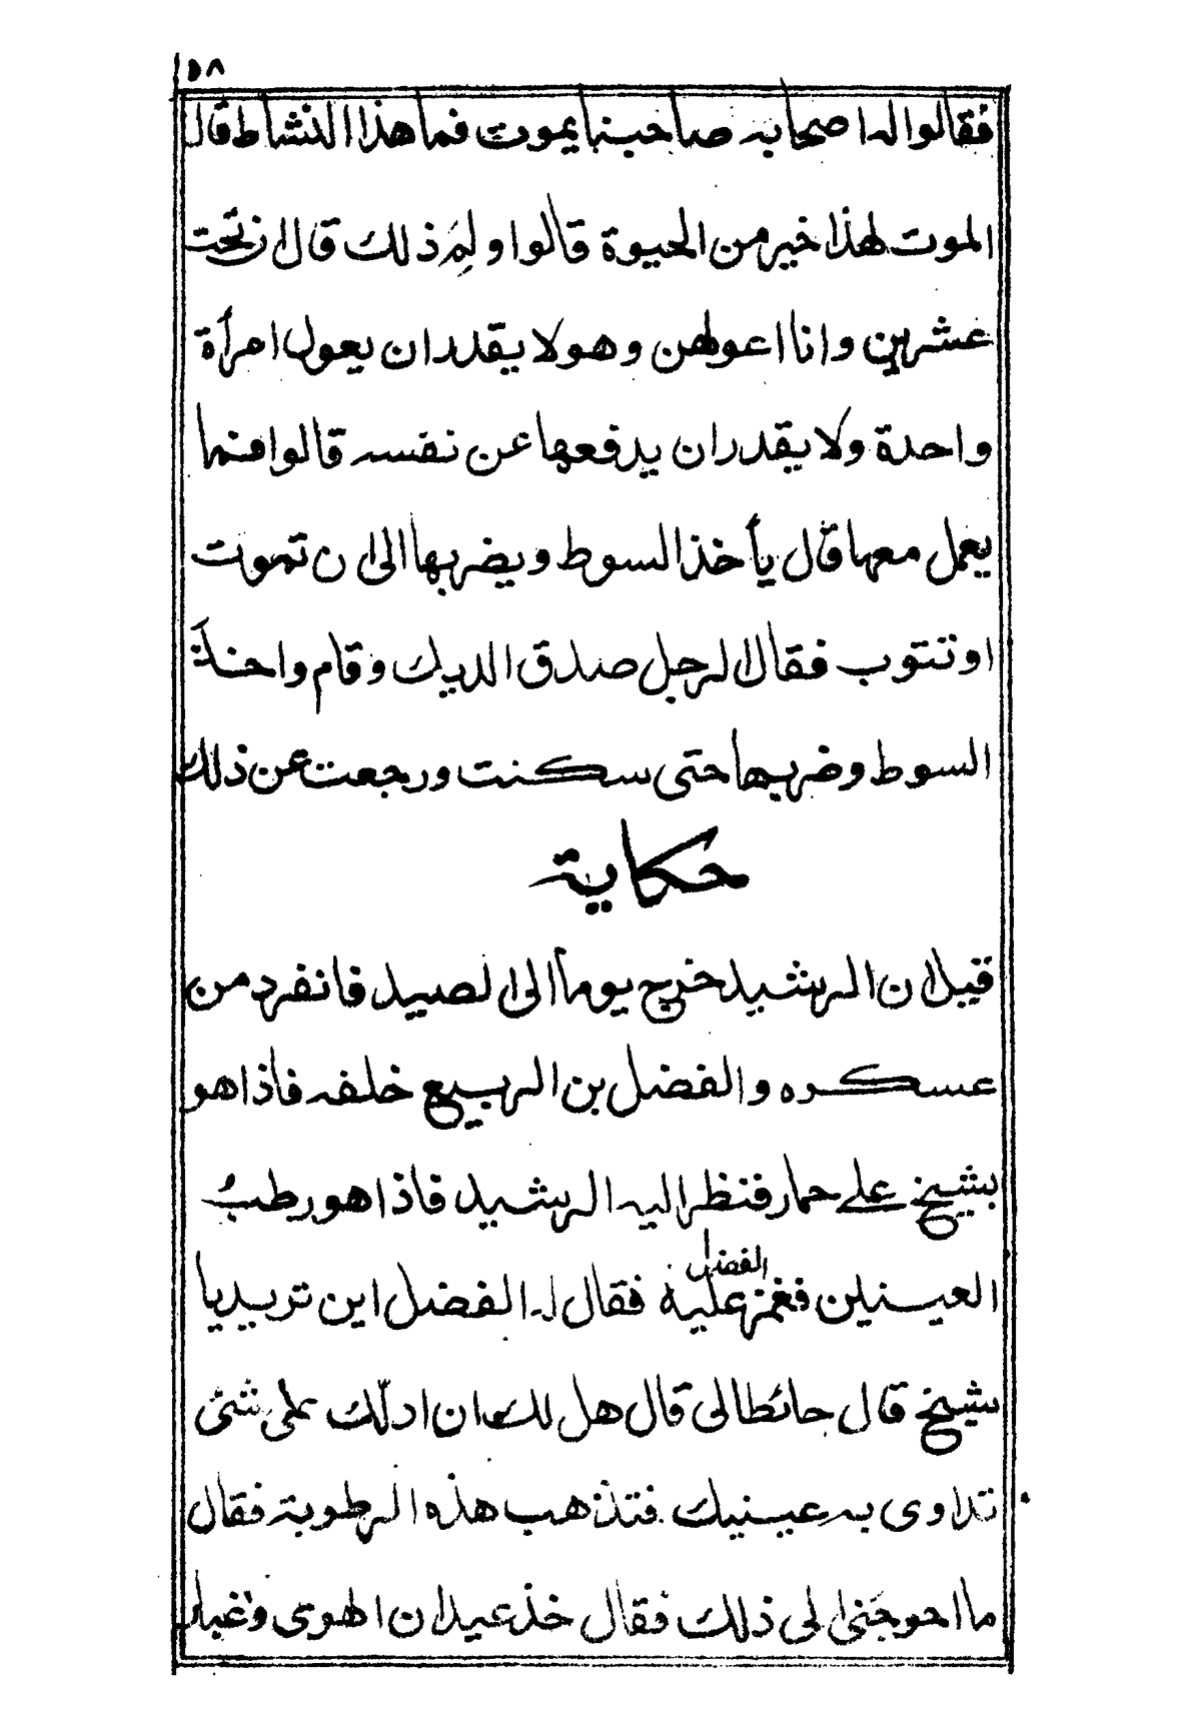 ٥٨
فقالوا له اصحابه صاحبنا يموت فما هذا النشاط قال
الموت لهذا خير من الحيوة قالوا ولِمَ ذلك قال ان تحت
عشرين وانا اعولهن وهو لا يقدر ان يعول امرأة
واحدة ولا يقدر ان يدفعها عن نفسه قالوا فما
يعمل معها قال يأخذ السوط ويضربها الى ان تموت
او تتوب فقال الرجل صدق الديك وقام واخذ
السوط وضربها حتى سكنت ورجعت عن ذلك
حكاية
قيل ان الرشيد خرج يوماً الى الصيد فانفرد من
عسكره والفضل بن الربيع خلفه فاذا هو
بشيخ على حمار فنظر اليه الرشيد فاذا هو رطبُ
العينين فغمز عليه الفضل فقال له الفضل اين تريد يا
شيخ قال حائطا لى قال هل لك ان ادلّك على شئ
تداوى به عينيك فتذهب هذه الرطوبة فقال
ما احوجَنى الى ذلك فقال خذ عيدان الهوى وغبار